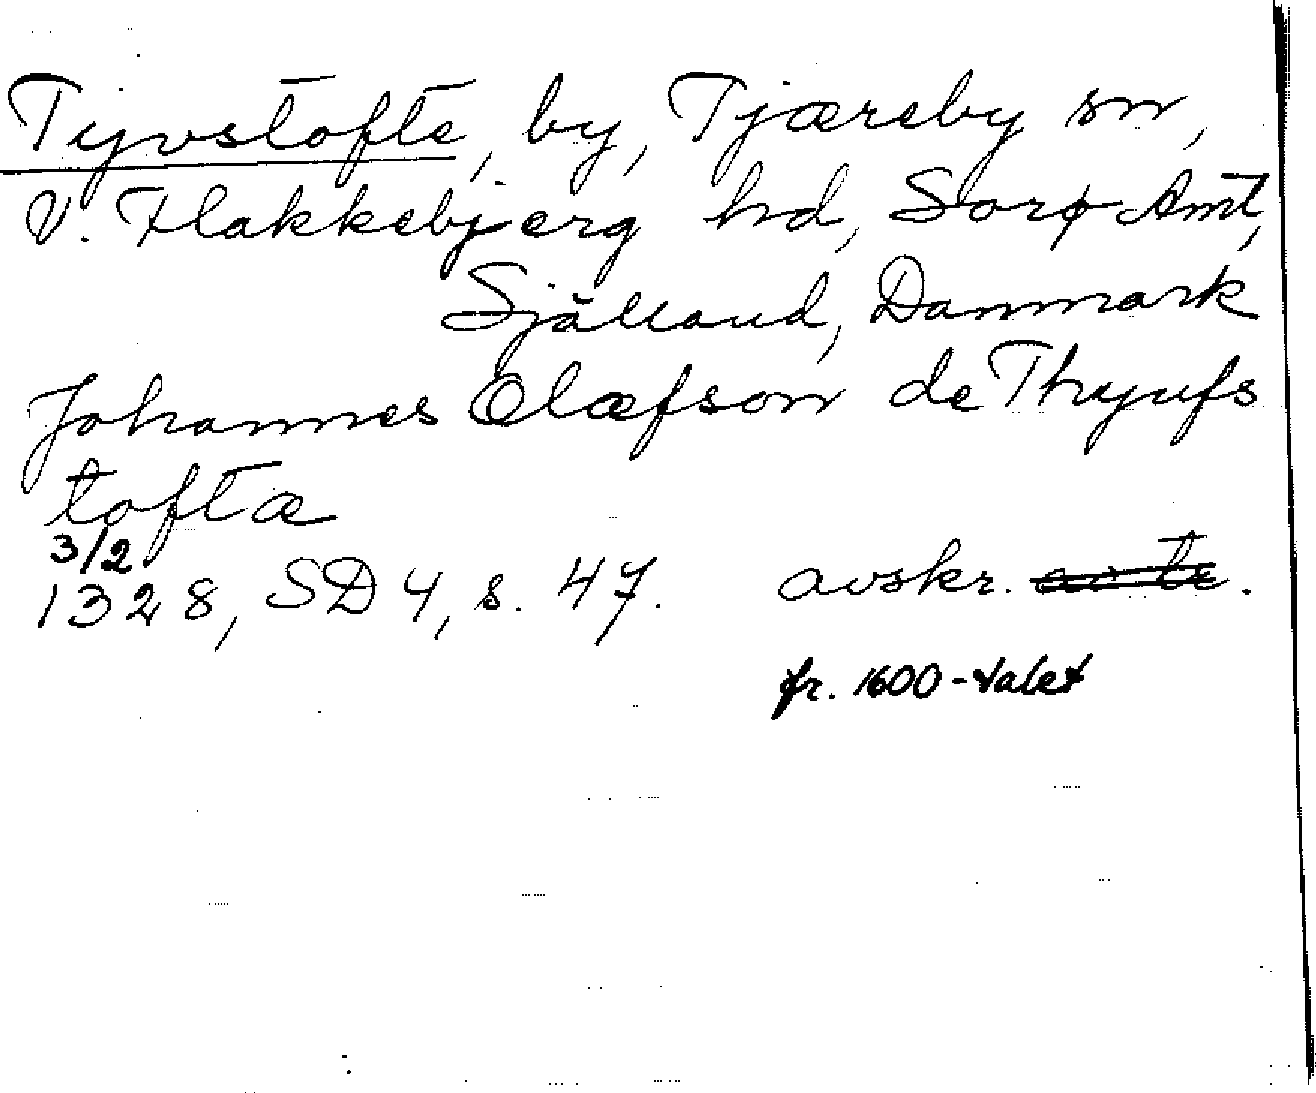 Tyvstofte, by, Tjæreby sn,
V. Flakkebjerg hd, Sorø Amt,
Själland, Danmark
Johannes Olæfson de Thyufs
toftæ
3/2
1328, SD 4, s. 47. avskr.
fr. 1600-talet